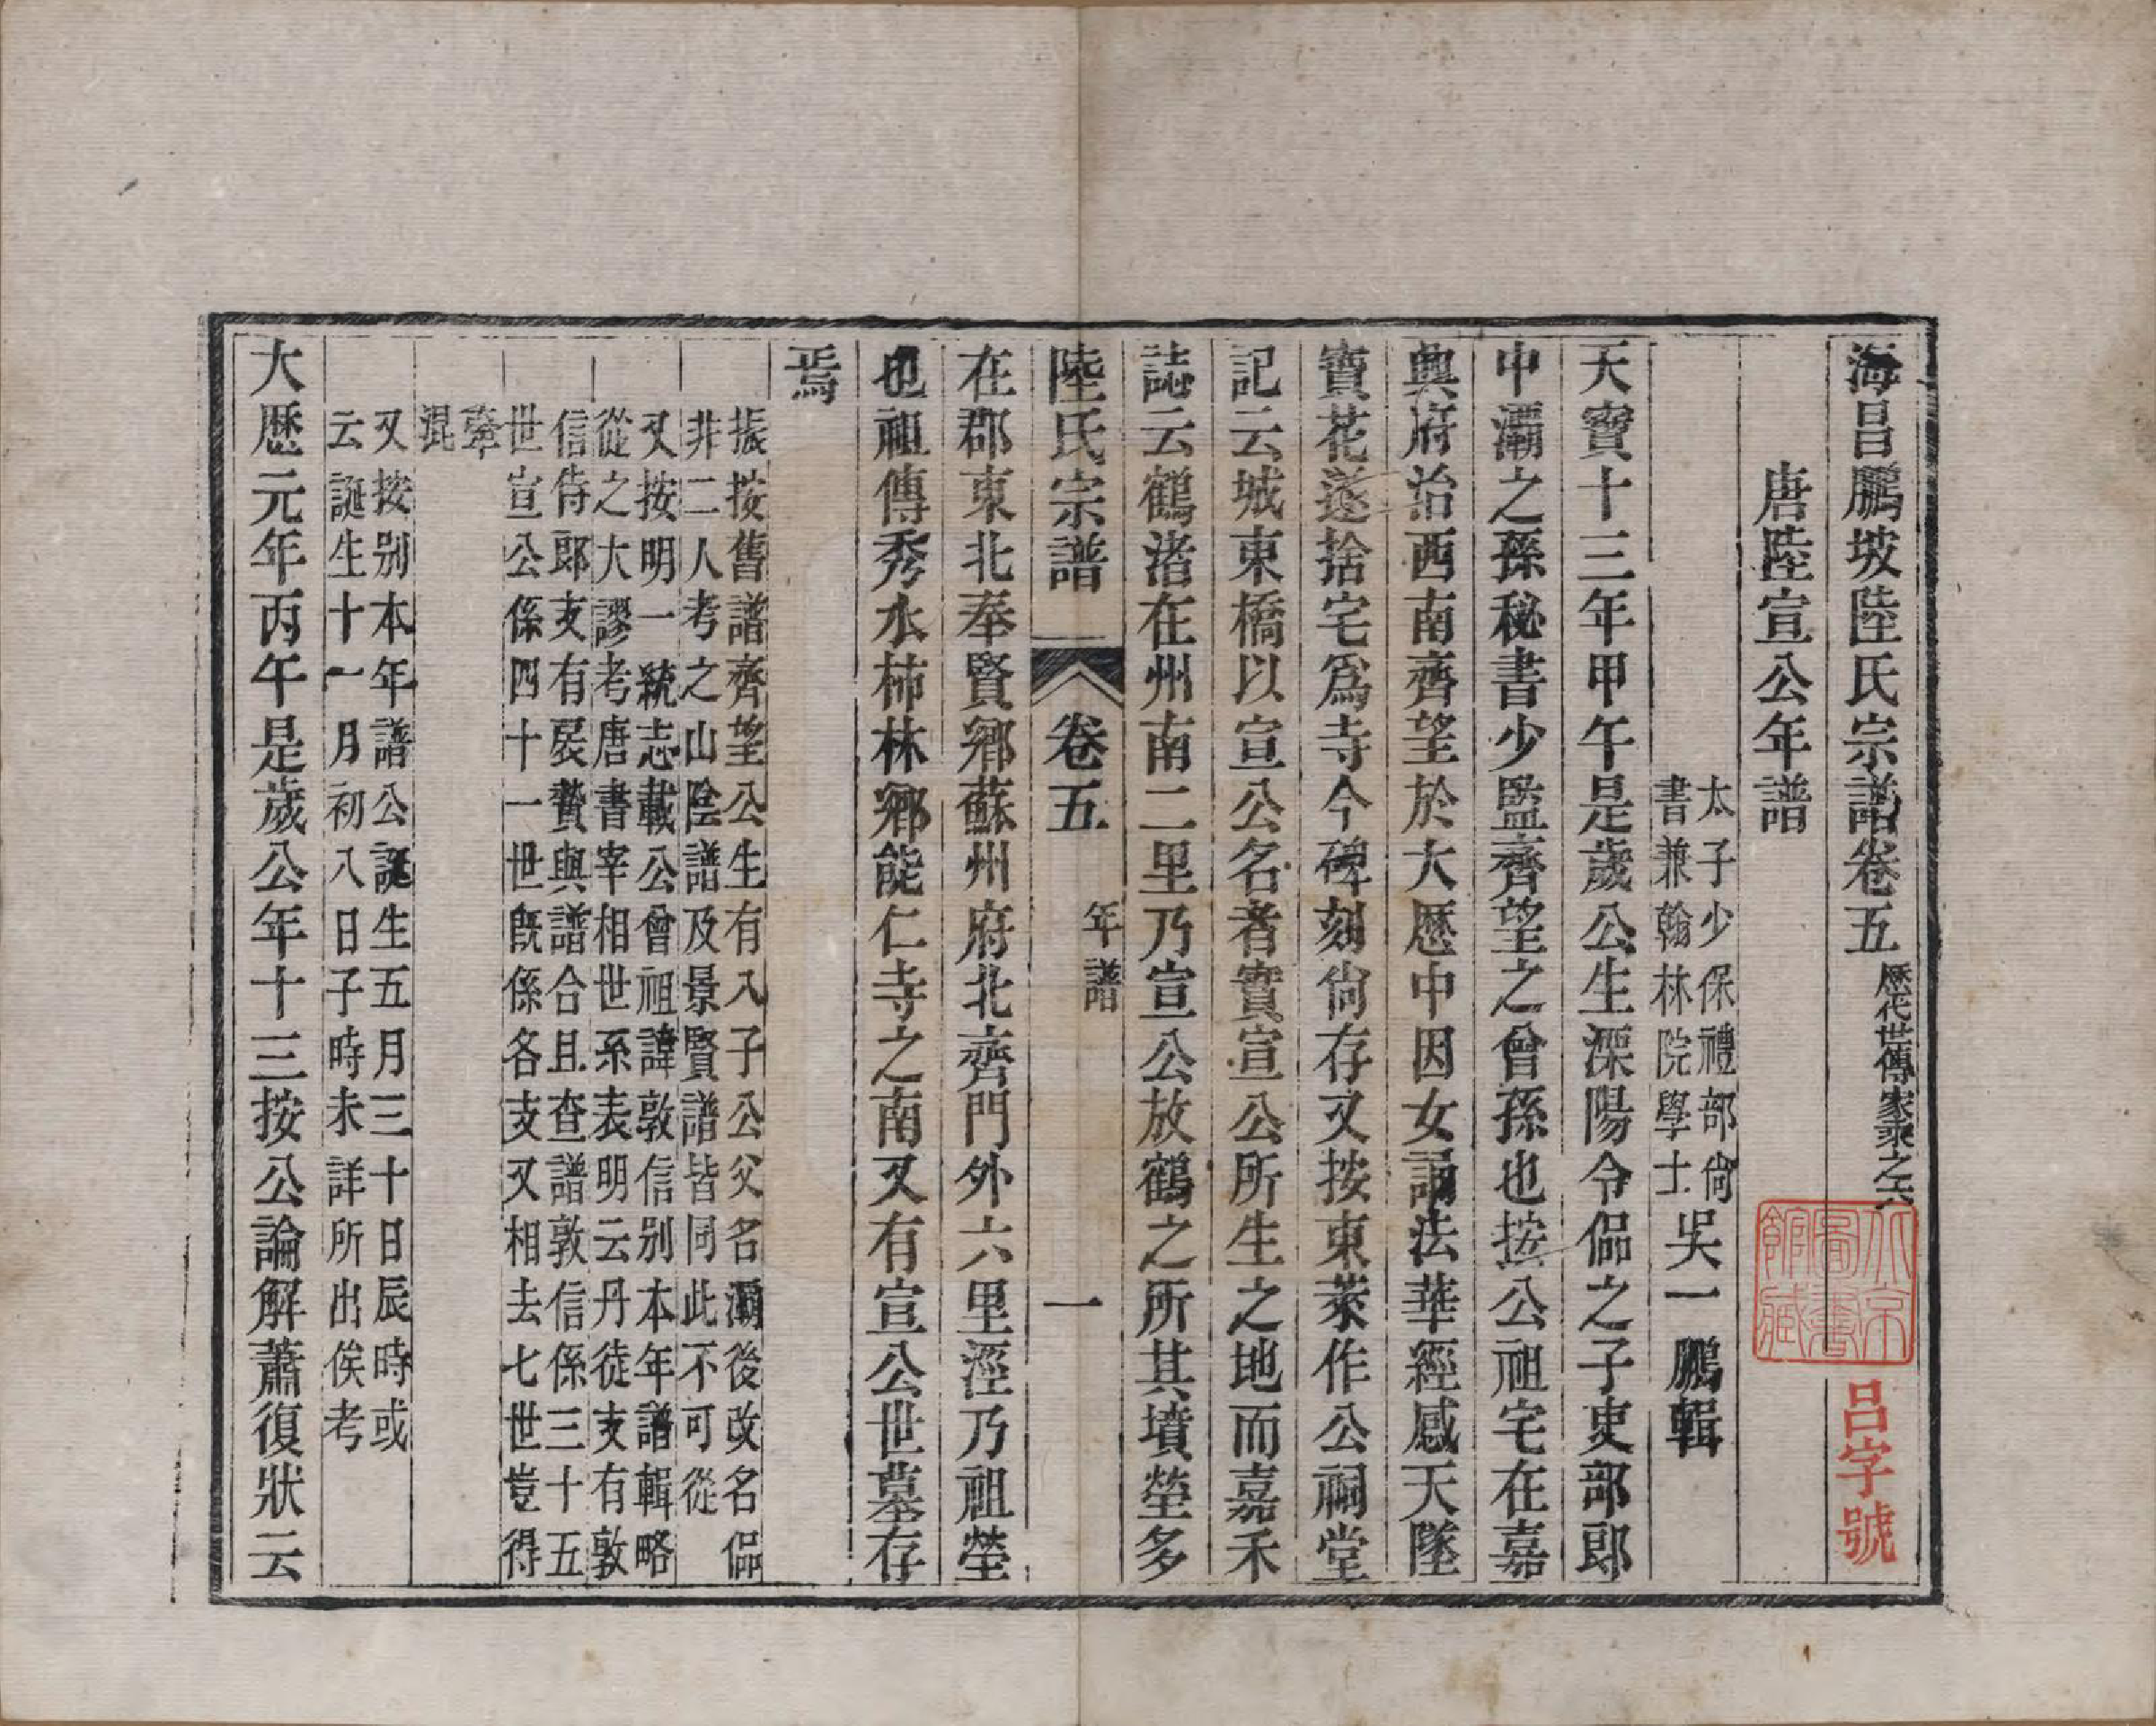 海昌鵬坡陸氏宗譜卷五 歷代世傳家乘之六
唐陸宣公年譜
太子少保禮部尙
書兼翰林院學士
吳一鵬輯
天寶十三年甲午是歲公生溧陽令偘之子吏部郎
中灞之孫秘書少監齊望之曾孫也按公祖宅在嘉
興府治西南齊望於大歷中因女誦法華經感天墜
寶花遂捨宅爲寺今碑刻尙存又按東萊作公祠堂
記云城東橋以宣公名者實宣公所生之地而嘉禾
誌云鶴渚在州南二里乃宣公放鶴之所其墳塋多
陸氏宗譜 卷五 年譜 一
在郡東北奉賢鄉蘇州府北齊門外六里涇乃祖塋
也祖傳秀水柿林鄉能仁寺之南又有宣公世墓存
焉
振按舊譜齊望公生有入子公父名灞後改名偘
非二人考之山陰譜及景賢譜皆同此不可從
又按明一統志載公曾祖諱敦信别本年譜輯略
從之大謬考唐書宰相世系表明云丹徒支有敦
信侍郎支有扆贄與譜合且查譜敦信係三十五
世宣公係四十一世旣係各支又相去七世豈得
牽
混
又按别本年譜公誕生五月三十日辰時或
云誕生十一月初八日子時未詳所出俟考
大歷元年丙午是歲公年十三按公論解蕭復狀云
北京
圖書
館藏
吕字號